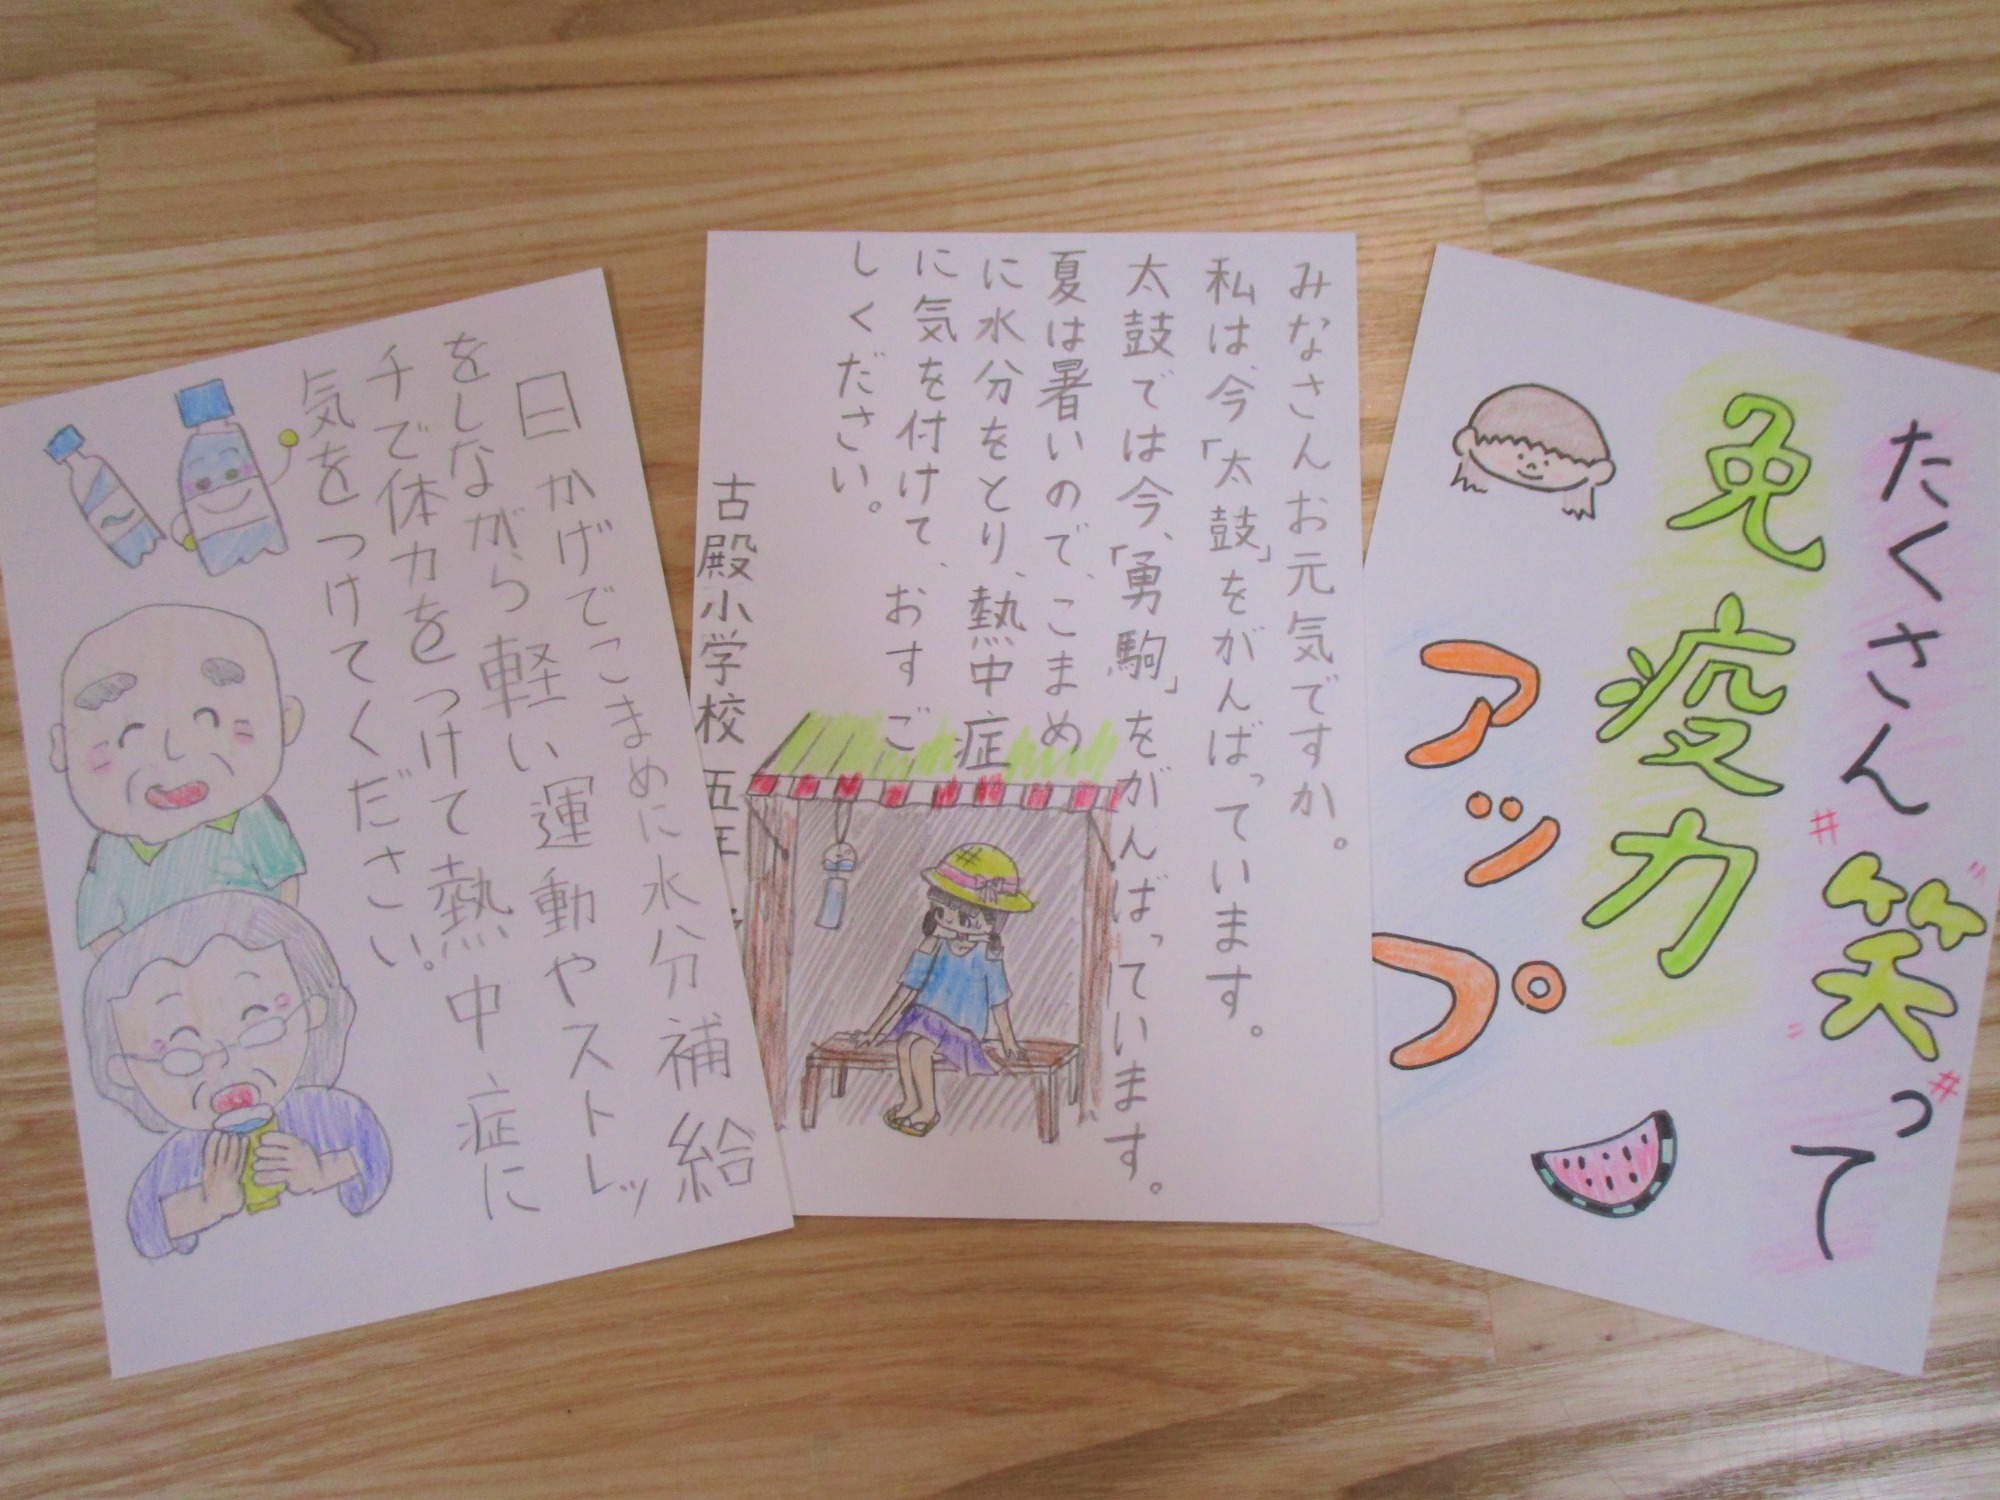 たくさん笑って
免疫力
アップ
みなさんお元気ですか。
私は、今「太鼓」をがんばっています。
太鼓では今、「勇駒」をがんばっています。
夏は暑いので、こまめ
に水分をとり、熱中症
に気を付けて、おすご
しください。
古殿小学校 五年
日かげでこまめに水分補給
をしながら軽い運動やストレッ
チで体力をつけて熱中症に
気をつけてください。